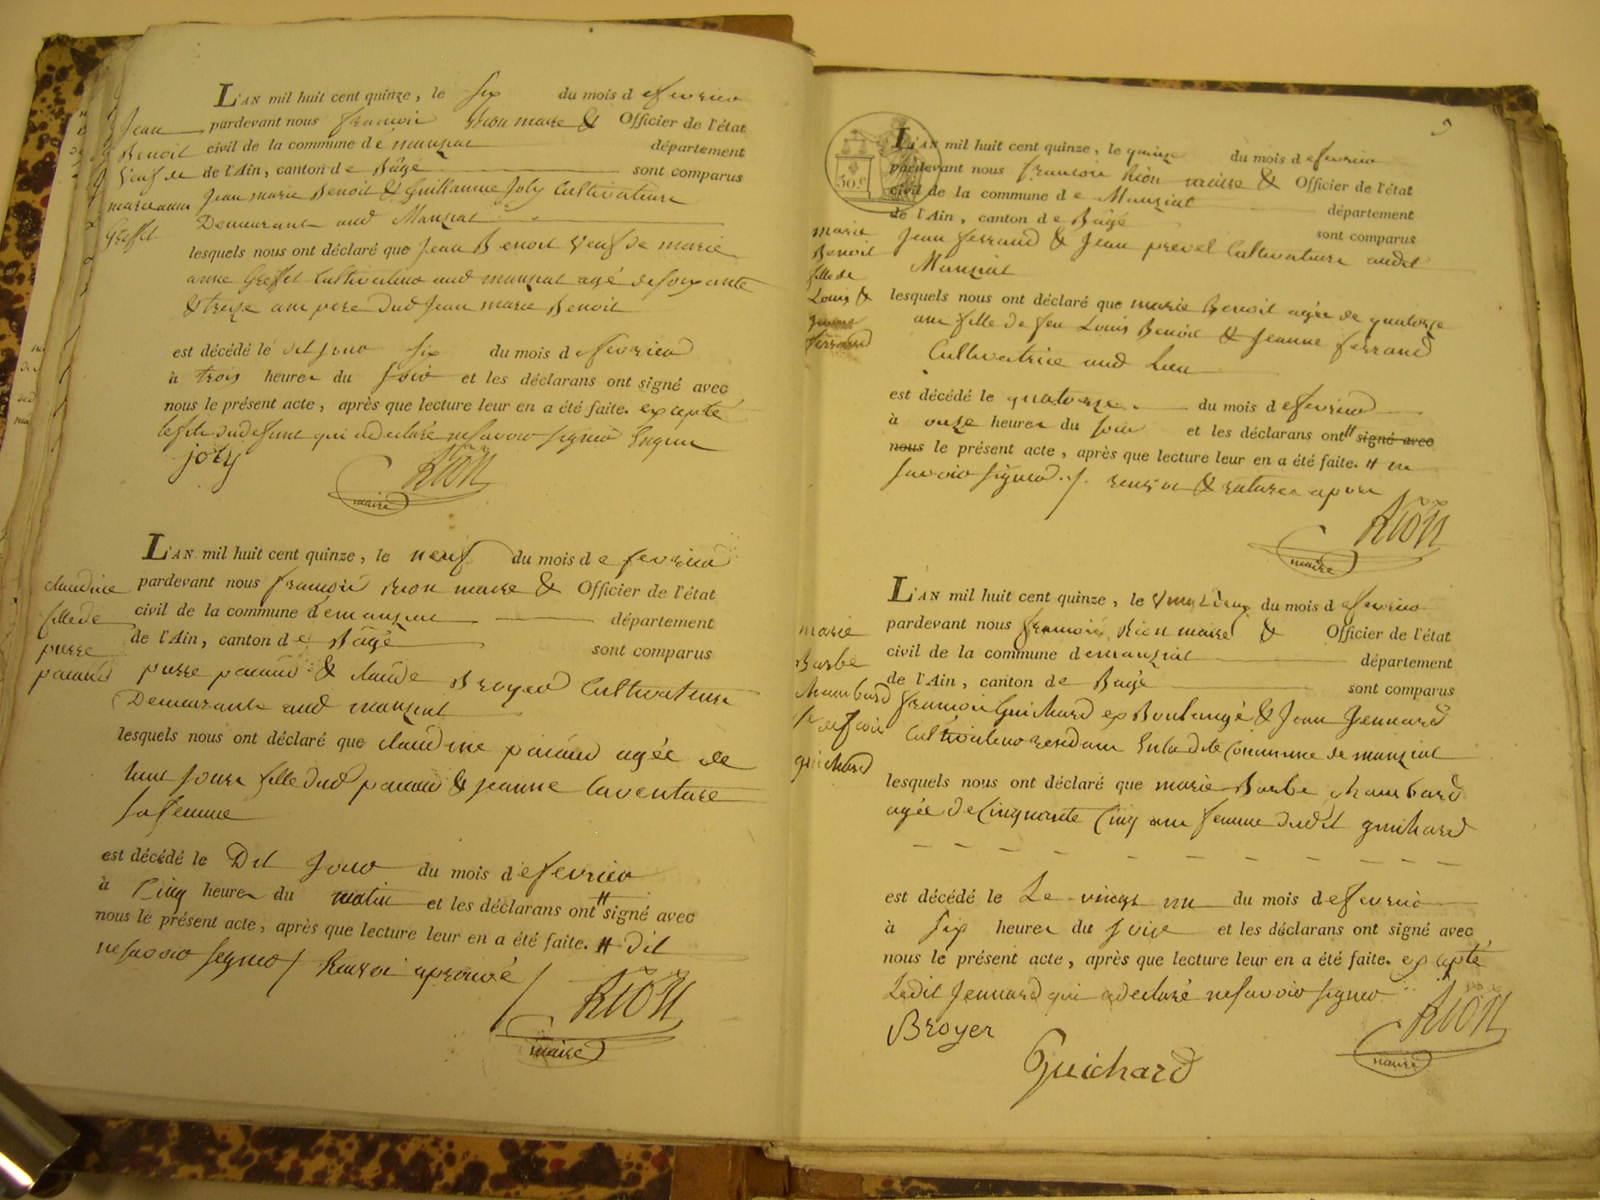 L'AN mil huit cent quinze, le six du mois de fevrier
pardevant nous francois Rion maire & Officier de l'état
civil de la commune de manziat département
de l'Ain, canton de Bagé sont comparus
Jean marie Benoit & Guillaume Joly Cultivateurs
Demeurants aud Manziat
lesquels nous ont déclaré que Jean Benoit veuf de marie
anne Greffet Cultivateur aud manziat agé de soixante
& treize ans pere dud Jean marie Benoit
est décédé le dit jour six du mois de fevrier
à trois heures du soir et les déclarans ont signé avec
nous le présent acte, après que lecture leur en a été faite. excepté
le fils du defunt qui a declaré ne savoir signer
joly
Rion
maire
Jean
Benoit
veuf de
marie anne
Greffet
L'AN mil huit cent quinze, le neuf du mois de fevrier
pardevant nous francois Rion maire & Officier de l'état
civil de la commune de manziat département
de l'Ain, canton de Bagé sont comparus
pierre pacaud & claude Broyer Cultivateurs
Demeurants aud manziat
lesquels nous ont déclaré que claudine pacaud agée de
huit jours fille dud pacaud & jeanne laventure
sa femme
est décédé le Dit Jour du mois de fevrier
à Cinq heures du matin et les déclarans ont # signé avec
nous le présent acte, après que lecture leur en a été faite. # dit
ne savoir signer / Renvoi aprouvé /
Rion
maire
claudine
fille de
pierre
pacaud
5
30 c
L'AN mil huit cent quinze, le quinze du mois de fevrier
pardevant nous francois Rion maire & Officier de l'état
civil de la commune de Manziat département
de l'Ain, canton de Bagé sont comparus
Jean ferrand & Jean prevel Cultivateurs audit
Manziat
lesquels nous ont déclaré que marie Benoit agée de quatorze
ans fille de feu Louis Benoit & Jeanne ferrand
Cultivatrice aud Lieu
est décédé le quatorze du mois de fevrier
à onze heures du soir et les déclarans ont # signé avec
nous le présent acte, après que lecture leur en a été faite. # ne
savoir signer ./. renvoi & ratures
Rion
maire
marie
Benoit
fille de
Louis &
jeanne
ferrand
L'AN mil huit cent quinze, le vingt deux du mois de fevrier
pardevant nous francois Rion maire & Officier de l'état
civil de la commune de manziat département
de l'Ain, canton de Bagé sont comparus
francois Guichard ex Boulangé & Jean Jennard
Cultivateur residans en ladite Commune de manziat
lesquels nous ont déclaré que marie Barbe chambard
agée de Cinquante Cinq ans femme dudit guichard
est décédé le Le vingt un du mois de fevrier
à six heures du soir et les déclarans ont signé avec
nous le présent acte, après que lecture leur en a été faite. excepté
Ledit Jennard qui a declaré ne savoir signer
Broyer
Rion
maire
Guichard
marie
Barbe
chambard
guichard